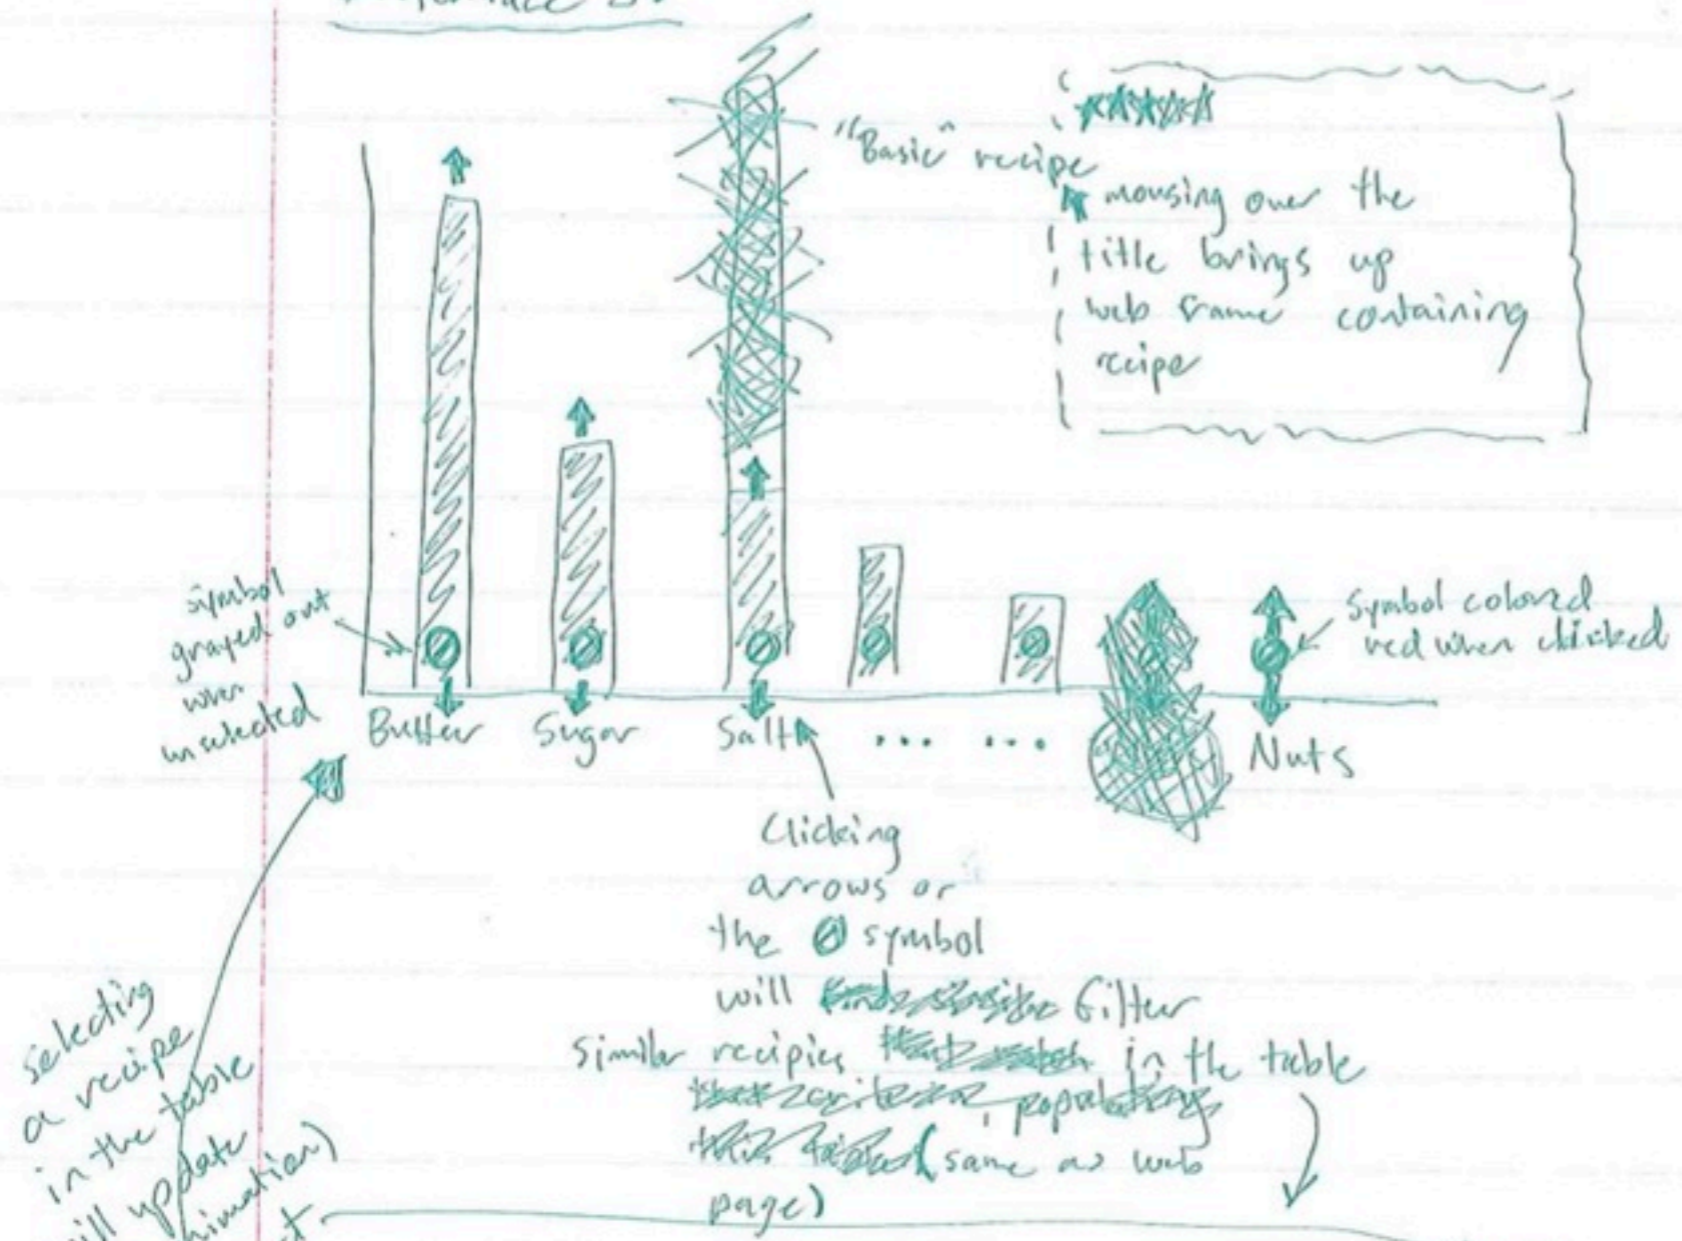 "Basic" recipe
mousing over the
title brings up
web frame containing
recipe
symbol
grayed out
when
unselected
Symbol colored
red when clicked
Butter Sugar Salt ... ... Nuts
Clicking
arrows or
the symbol
will filter
similar recipies in the table
(same as web
page)
selecting
a recipe
in the table
will update